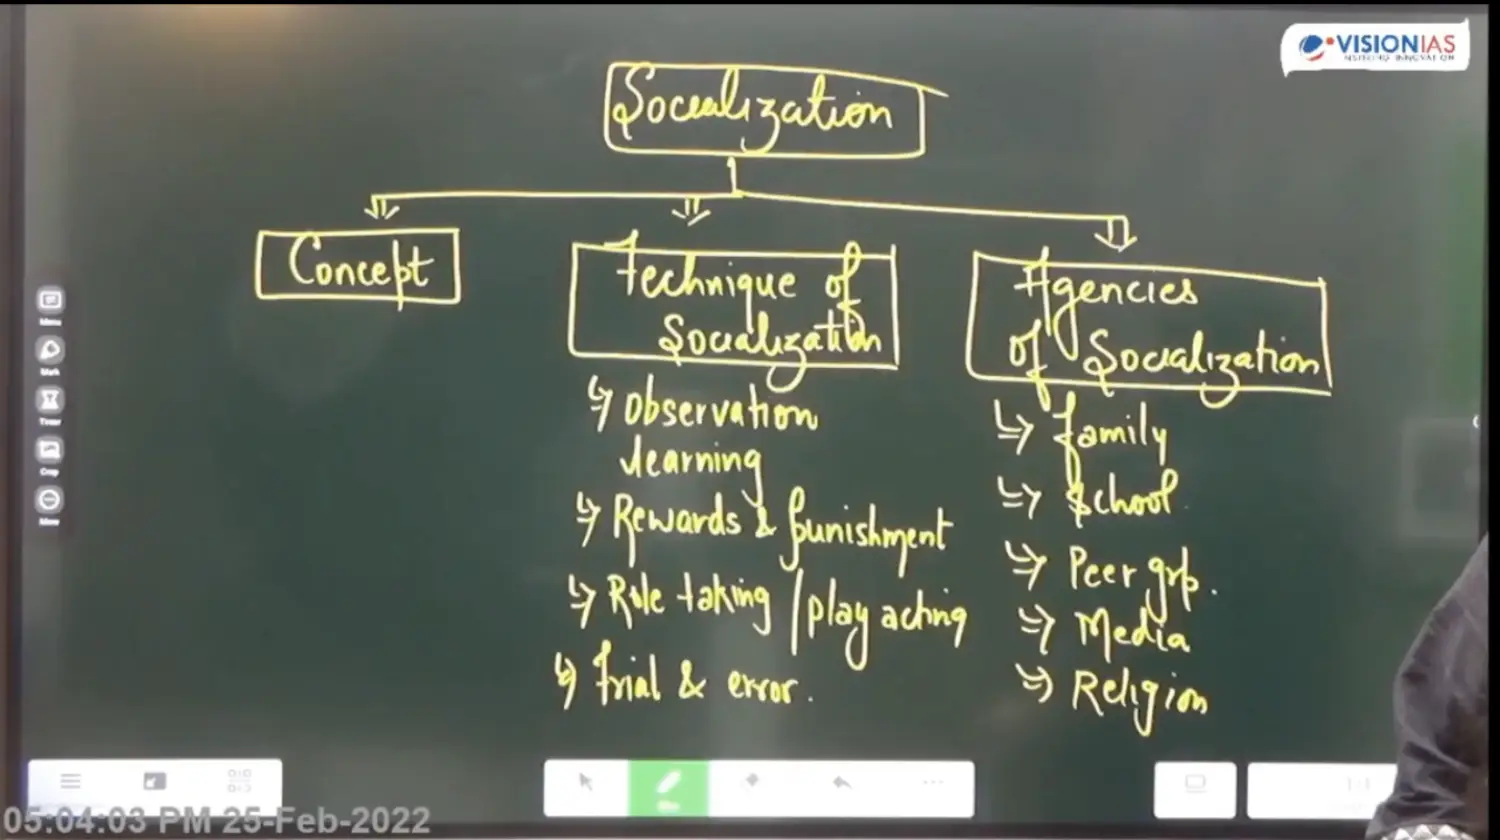 VISIONIAS
INSPIRING INNOVATION
Socialization
Concept
Technique of
Socialization
Agencies
of Socialization
Observation
learning
Rewards & punishment
Role taking / play acting
Trial & error.
Family
School
Peer grp.
Media
Religion
Menu
Mark
Timer
Crop
More
05:04:03 PM 25-Feb-2022